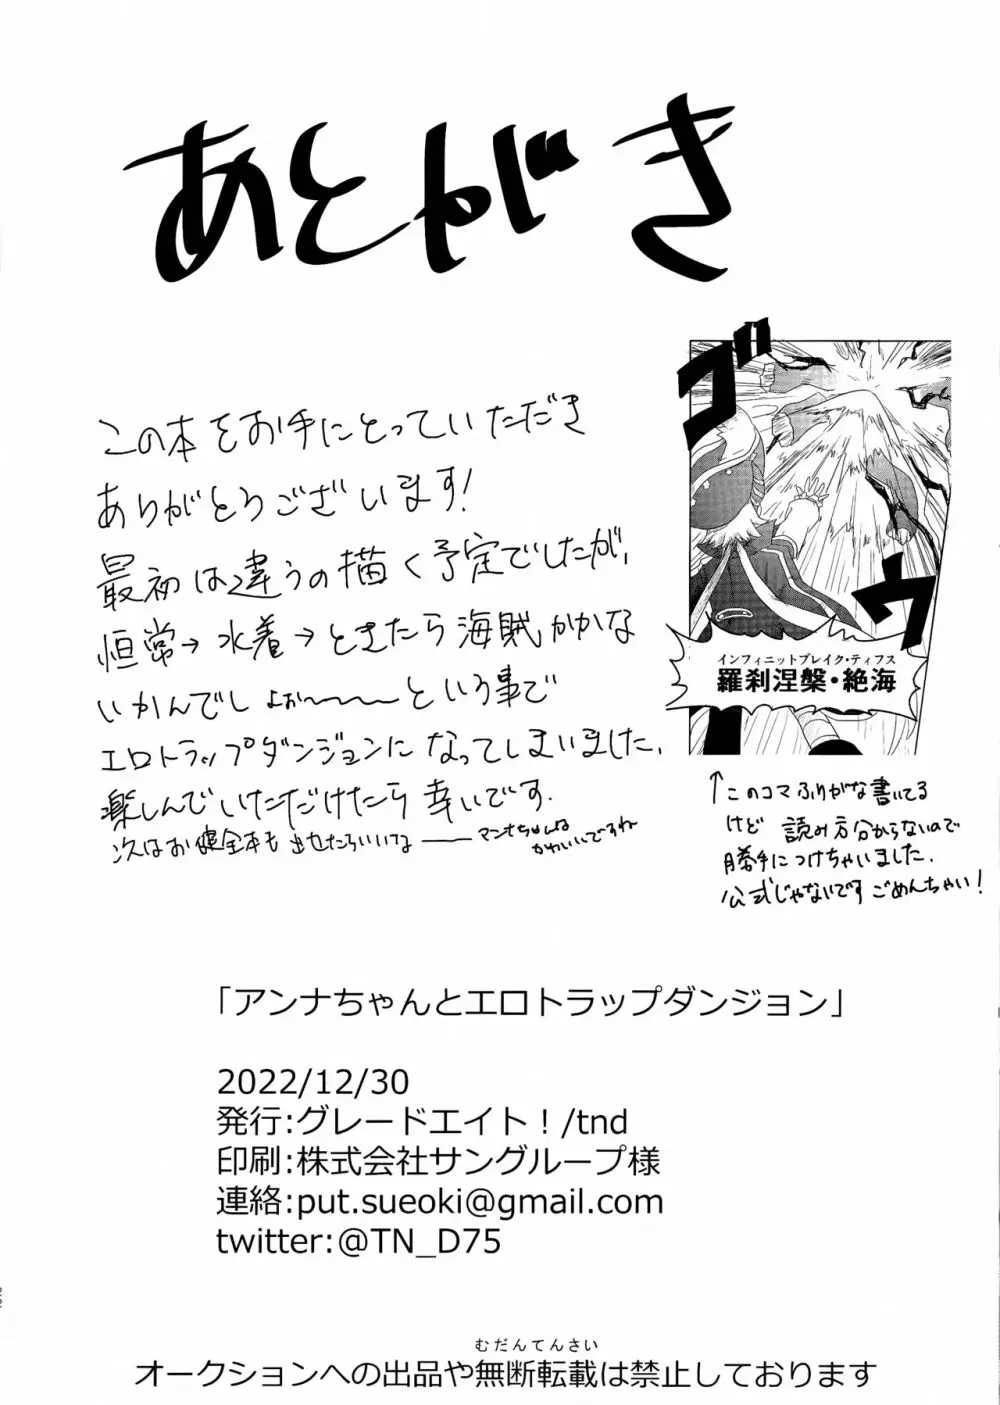 あとがき
この本をお手にとっていただき
ありがとうございます!
最初は違うの描く予定でしたが、
恒常→水着→ときたら海賊かかな
いかんでしょぉ〜〜〜という事で
エロトラップダンジョンになってしまいました、
楽しんでいただけたら幸いです.
次はお健全本も出せたらいいな——マンナちゃんは
かわいいですね
ゴ
ゥ
インフィニットブレイク・ティフス
羅刹涅槃・絶海
↑このコマふりがな書いてる
けど 読み方分からないので
勝手につけちゃいました.
公式じゃないです ごめんちゃい!
「アンナちゃんとエロトラップダンジョン」
2022/12/30
発行:グレードエイト!/tnd
印刷:株式会社サングループ様
連絡:put.sueoki@gmail.com
twitter:@TN_D75
むだんてんさい
オークションへの出品や無断転載は禁止しております